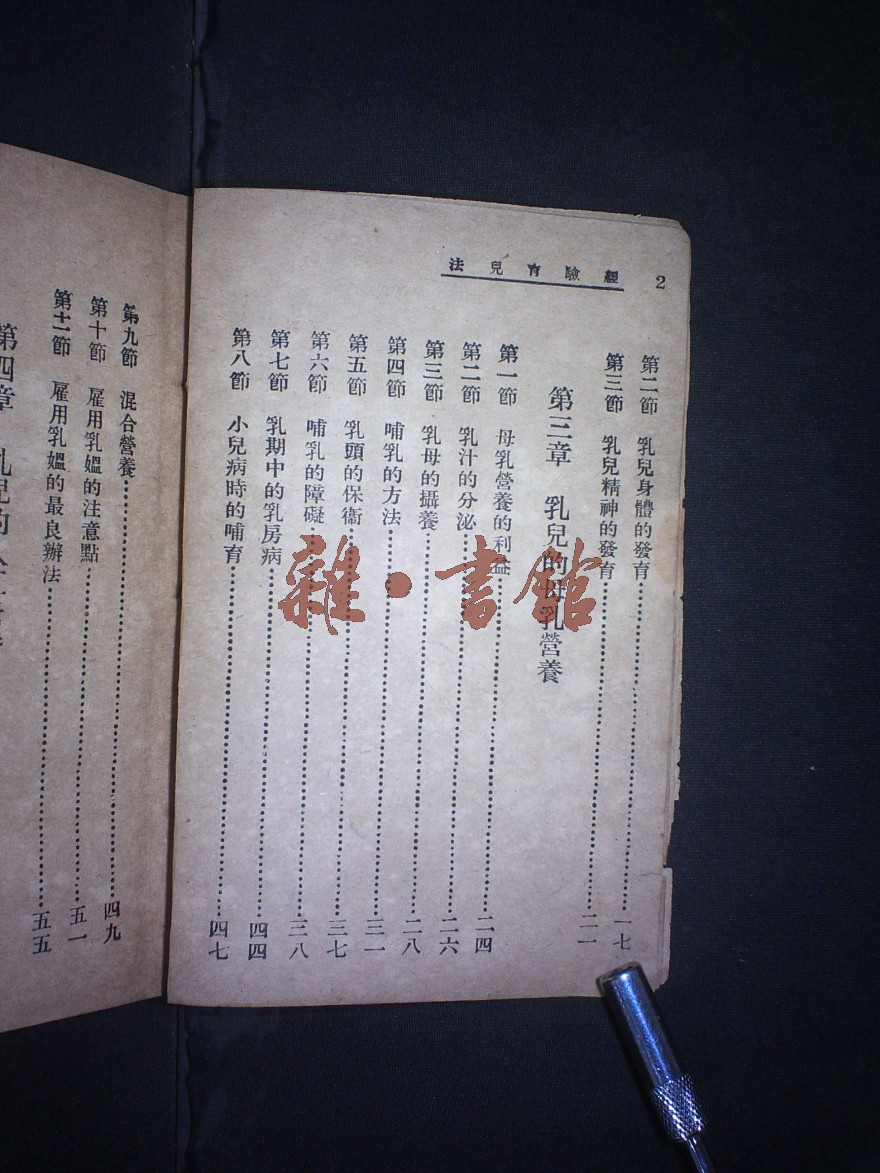 經驗育兒法
2
第二節 乳兒身體的發育……一七
第三節 乳兒精神的發育……二一
第三章 乳兒的母乳營養
第一節 母乳營養的利益……二四
第二節 乳汁的分泌……二六
第三節 乳母的攝養……二八
第四節 哺乳的方法……三一
第五節 乳頭的保衞……三七
第六節 哺乳的障礙……三八
第七節 乳期中的乳房病……四四
第八節 小兒病時的哺育……四七
第九節 混合營養……四九
第十節 雇用乳媼的注意點……五一
第十一節 雇用乳媼的最良辦法……五五
第四章 乳兒的
雜·書館